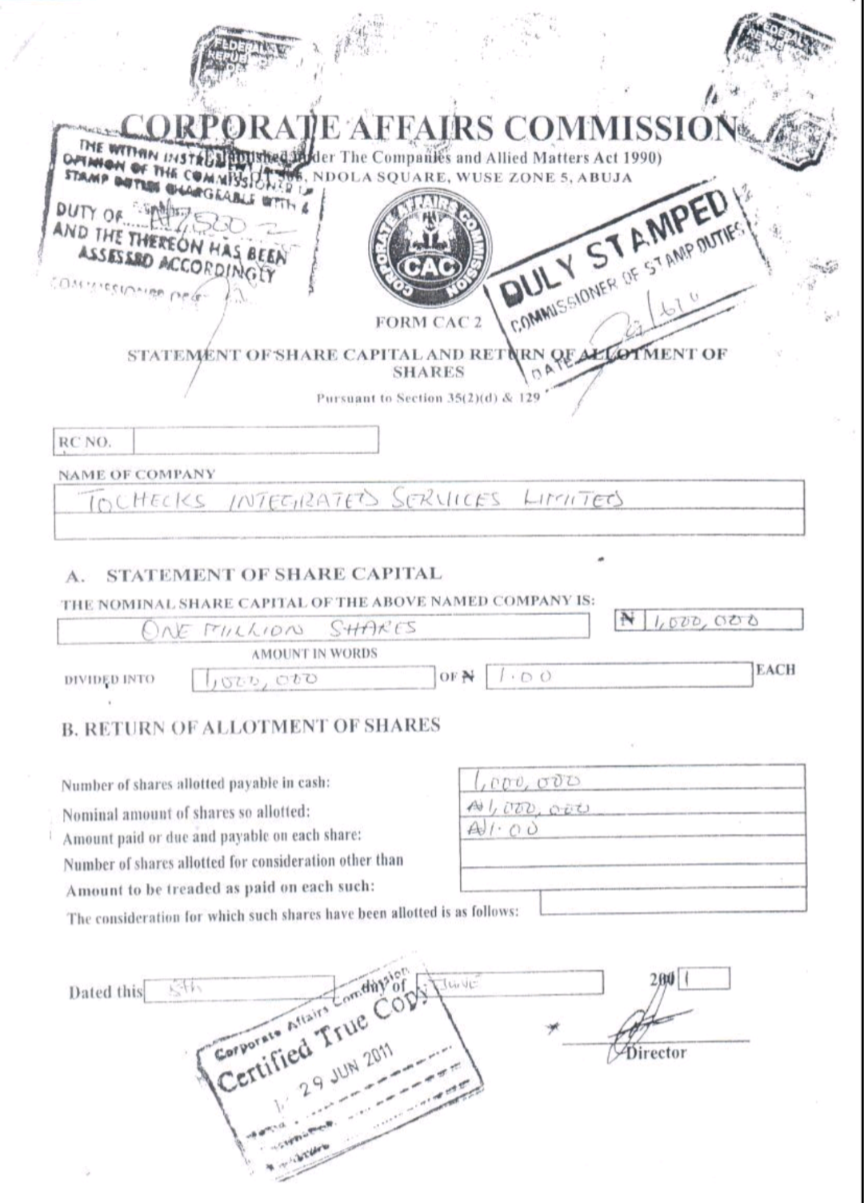 FEDERAL
REPUBLIC
OF
CORPORATE AFFAIRS COMMISSION
Under The Companies and Allied Matters Act 1990)
NDOLA SQUARE, WUSE ZONE 5, ABUJA
THE WITHIN
OPINION OF THE COMMISSIONER OF
STAMP DUTIES CHARGEABLE WITH A
DUTY OF
AND THE THEREON HAS BEEN
ASSESSED ACCORDINGLY
CORPORATE AFFAIRS COMMISSION
CAC
DULY STAMPED
COMMISSIONER OF STAMP DUTIES
DATE
FORM CAC 2
STATEMENT OF SHARE CAPITAL AND RETURN OF ALLOTMENT OF
SHARES
Pursuant to Section 35(2)(d) & 129
RC NO.
NAME OF COMPANY
TOCHECKS INTEGRATED SERVICES LIMITED
A. STATEMENT OF SHARE CAPITAL
THE NOMINAL SHARE CAPITAL OF THE ABOVE NAMED COMPANY IS:
ONE MILLION SHARES ₦ 1,000,000
AMOUNT IN WORDS
DIVIDED INTO 1,000,000 OF ₦ 1.00 EACH
B. RETURN OF ALLOTMENT OF SHARES
Number of shares allotted payable in cash: 1,000,000
Nominal amount of shares so allotted: ₦1,000,000
Amount paid or due and payable on each share: ₦1.00
Number of shares allotted for consideration other than
Amount to be treaded as paid on each such:
The consideration for which such shares have been allotted is as follows:
Dated this 8th day of JUNE
Director
Corporate Affairs Commission
Certified True Copy
29 JUN 2011